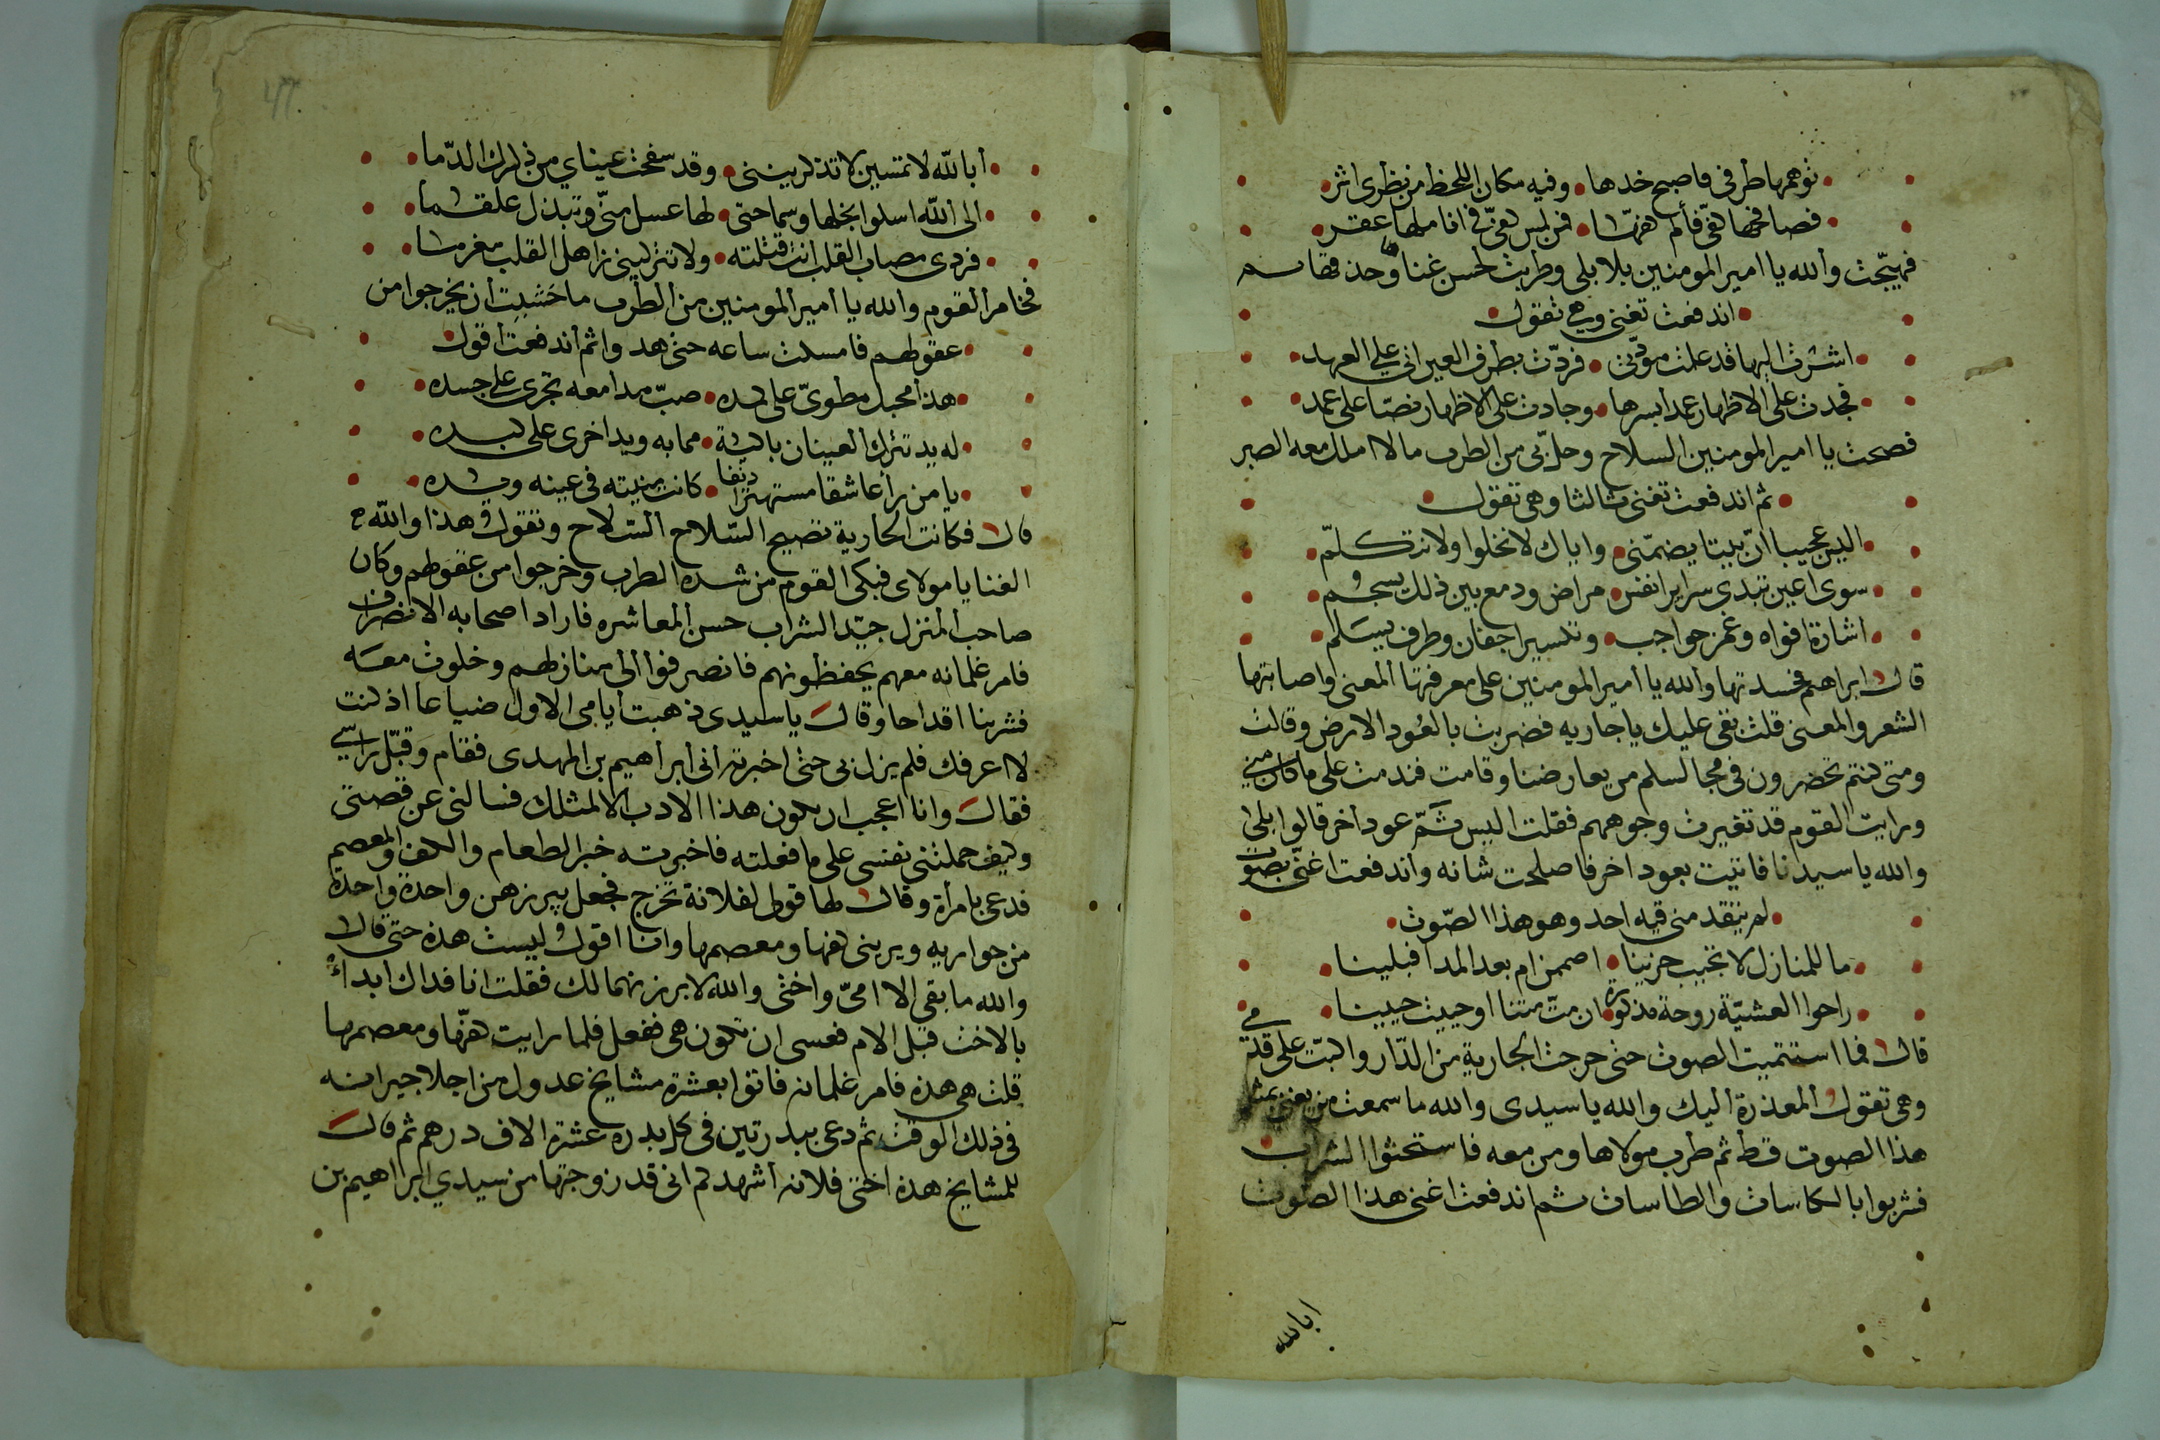 توهمها طرفى فاصبح خدها وفيه مكان اللحظ من نظرى اثر
فصافحها كفى فألم كفها فمن لمس كفى فى اناملها عقر
فهيجت والله يا امير المومنين بلابلى وطربت لحسن غناها وحذقها ثم
اندفعت تغنى وهى تقول
اشرت اليها قد علمت مودتى فردت بطرف العين انى على العهد
فجدت على الاظهار عمدا بسرها وجادت على الاظهار نصا على عمد
فصحت يا امير المومنين السلاح وحل بى من الطرب ما لا املك معه الصبر
ثم اندفعت تغنى ثالثا وهى تقول
اليس عجيبا ان بيتا يضمنى واياك لا نخلوا ولا نتكلم
سوى اعين تبدى سراير انفس مراض ودمع بين ذلك يسجم
اشارة افواه وغمز حواجب وتكسير اجفان وطرف يسلم
قال ابراهيم فحسدتها والله يا أمير المومنين على معرفتها المعنى واصابتها
الشعر والمعنى قلت بقى عليك يا جاريه فضربت بالعود الارض وقالت
ومتى كنتم تحضرون فى مجالسكم من يعارضنا وقامت فندمت على ما كان منى
ورايت القوم قد تغيرت وجوههم فقلت اليس ثم عود أخر قالوا بلى
والله يا سيدنا فاتيت بعود اخر فاصلحت شانه واندفعت اغنى بصوت
لم ينقد منى فيه احد وهو هذا الصوت
ما للمنازل لا تجيب حزينا اصممن ام بعد المدا فبلينا
راحوا العشية روحة مذكورة ان مت متنا او حييت حيينا
قال فما استتميت الصوت حتى خرجت الجارية من الدار واكبت على قدمى
وهى تقول المعذرة اليك والله يا سيدى والله ما سمعت من يغنى بمثل
هذا الصوت قط ثم طرب مولاها ومن معه فاستحثوا الشراب
فشربوا بالكاسات والطاسات ثم اندفعت اغنى هذا الصوت
ابالله
أبالله لا تمسين لا تذكريننى وقد سفحت عيناي من ذكرك الدما
الى الله اسلوا بخلها وسماحتى لها عسل منى وتبذل علقما
فردى مصاب القلب انت قتلته ولا تتركينى ذاهل القلب مغرما
فخامر القوم والله يا امير المومنين من الطرب ما خشيت أن يخرجوا من
عقولهم فامسكت ساعه حتى هدوا ثم أندفعت أقول
هذا محبك مطوى على كمده صب مدامعه تجرى على جسده
له يد تترك العينان باكية مما به ويد اخرى على كبده
يا من رأ عاشقا مستهترا دنفا كانت منيته فى عينه ويده
قال فكانت الجارية تصيح السلاح السلاح وتقول هذا والله
الغنا يا مولاى فبكى القوم من شدة الطرب وخرجوا من عقولهم وكان
صاحب المنزل جيد الشراب حسن المعاشره فاراد اصحابه الانصراف
فامر غلمانه معهم يحفظونهم فانصرفوا الى منازلهم وخلوت معه
فشربنا اقداحا وقال يا سيدى ذهبت أيامى الاول ضياعا اذ كنت
لا اعرفك فلم يزل بى حتى اخبرته انى ابراهيم بن المهدى فقام وقبل راسى
فقال وانا اعجب ان يكون هذا الادب الا لمثلك فسالنى عن قصتى
وكيف حملتنى نفسى على ما فعلته فاخبرته خبر الطعام والكف والمعصم
فدعى بامرأة وقال لها قولى لفلانة تخرج فجعل يبرز هن واحدة واحدة
من جواريه ويرينى كفها ومعصمها وانا اقول ليست هذه حتى قال
والله ما بقى الا امى واختى والله لابرزنهما لك فقلت انا فداك ابداء
بالاخت قبل الام فعسى ان تكون هى ففعل فلما رايت كفها ومعصمها
قلت هى هذه فامر غلمانه فاتوا بعشرة مشايخ عدول من اجلا جيرانه
فى ذلك الوقت ثم دعى ببدرتين فى كل بدره عشرة الاف درهم ثم قال
للمشايخ هذه اختى فلانه أشهدكم انى قد زوجتها من سيدي ابراهيم بن